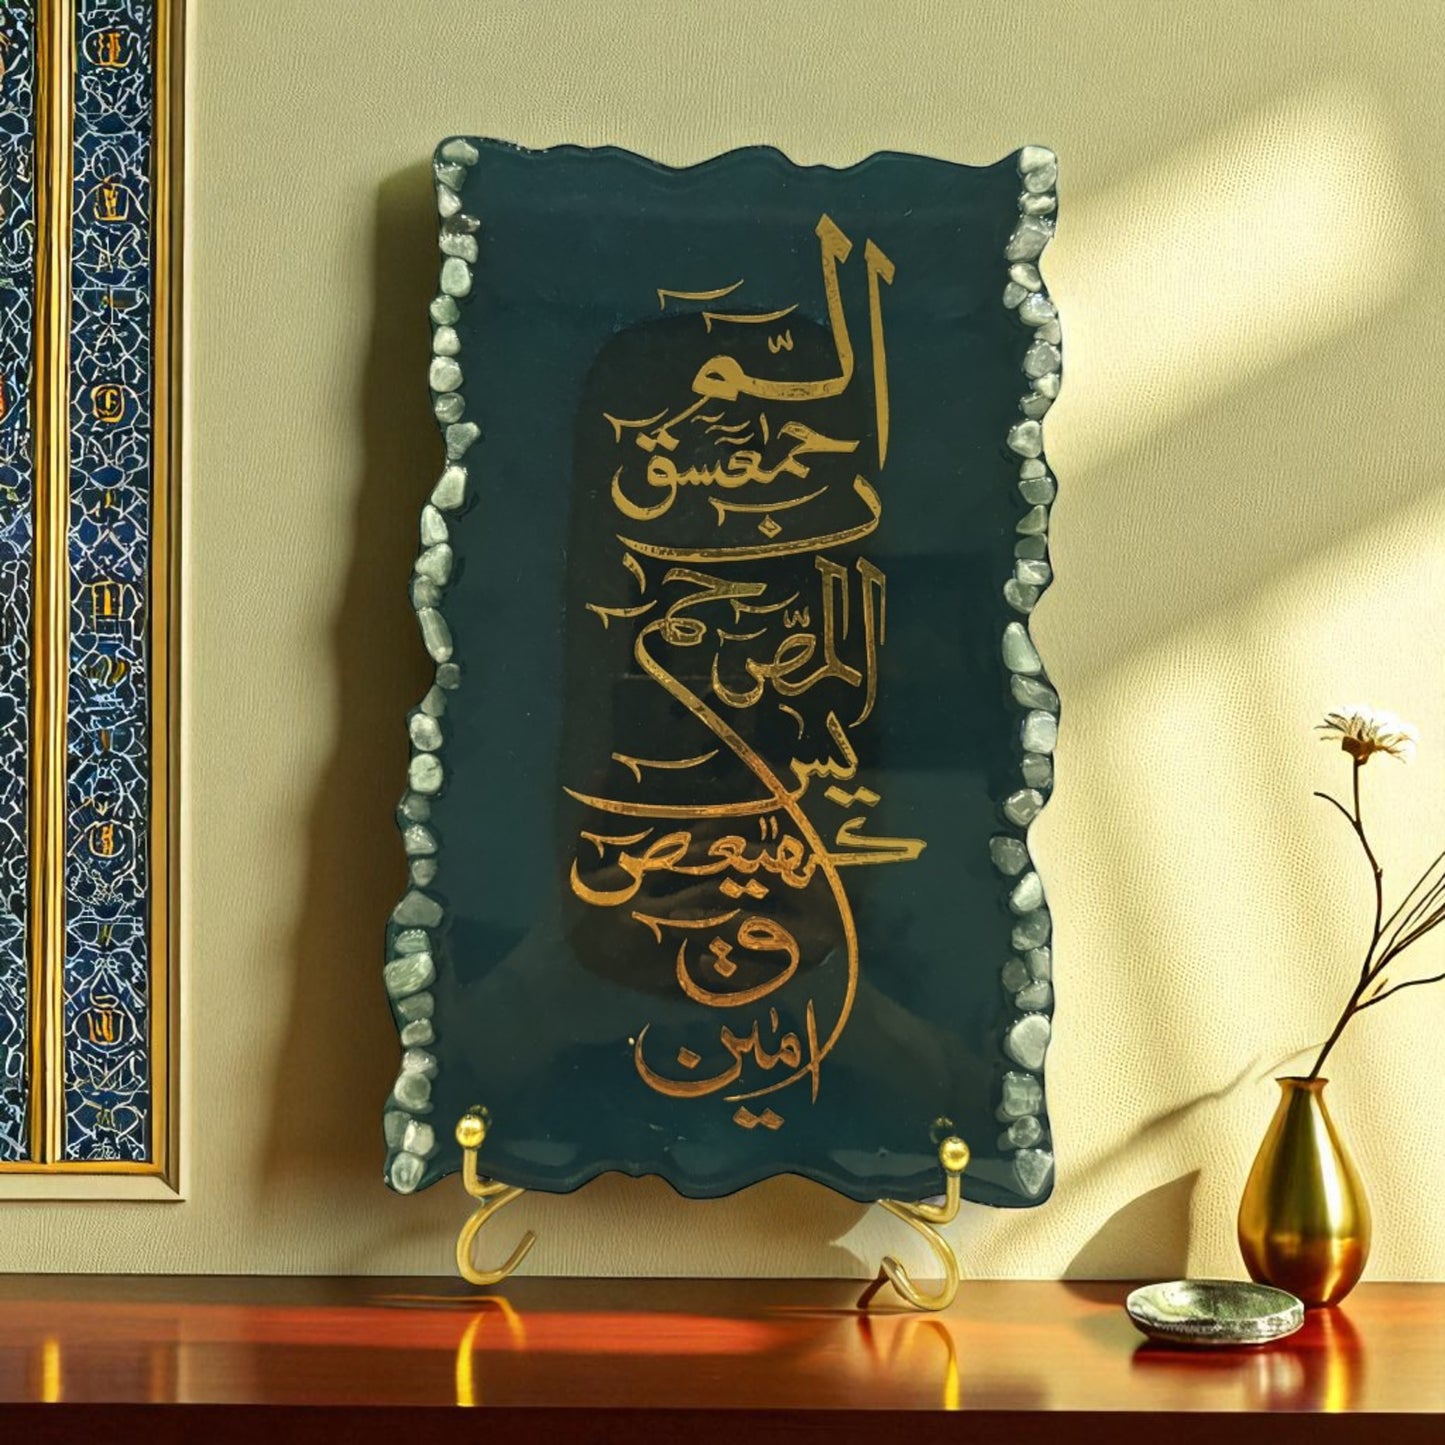 الٓمّٓ
حمٓعٓسٓقٓ
نٓ
حٰمٓ
الٓمّٓصٓ
يٰسٓ
كٓهٰيٰعٓصٓ
قٓ
اٰمين